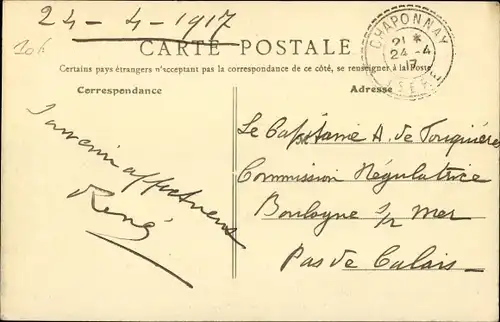 24-4-1917
106
CARTE POSTALE
Certains pays étrangers n'acceptant pas la correspondance de ce côté, se renseigner à la Poste
Correspondance
Adresse
CHAPONNAY
21 *
24-4
17
ISÈRE
Souvenir affectueux
René
Le Capitaine A. de
Commission Régulatrice
Boulogne s/ Mer
Pas de Calais